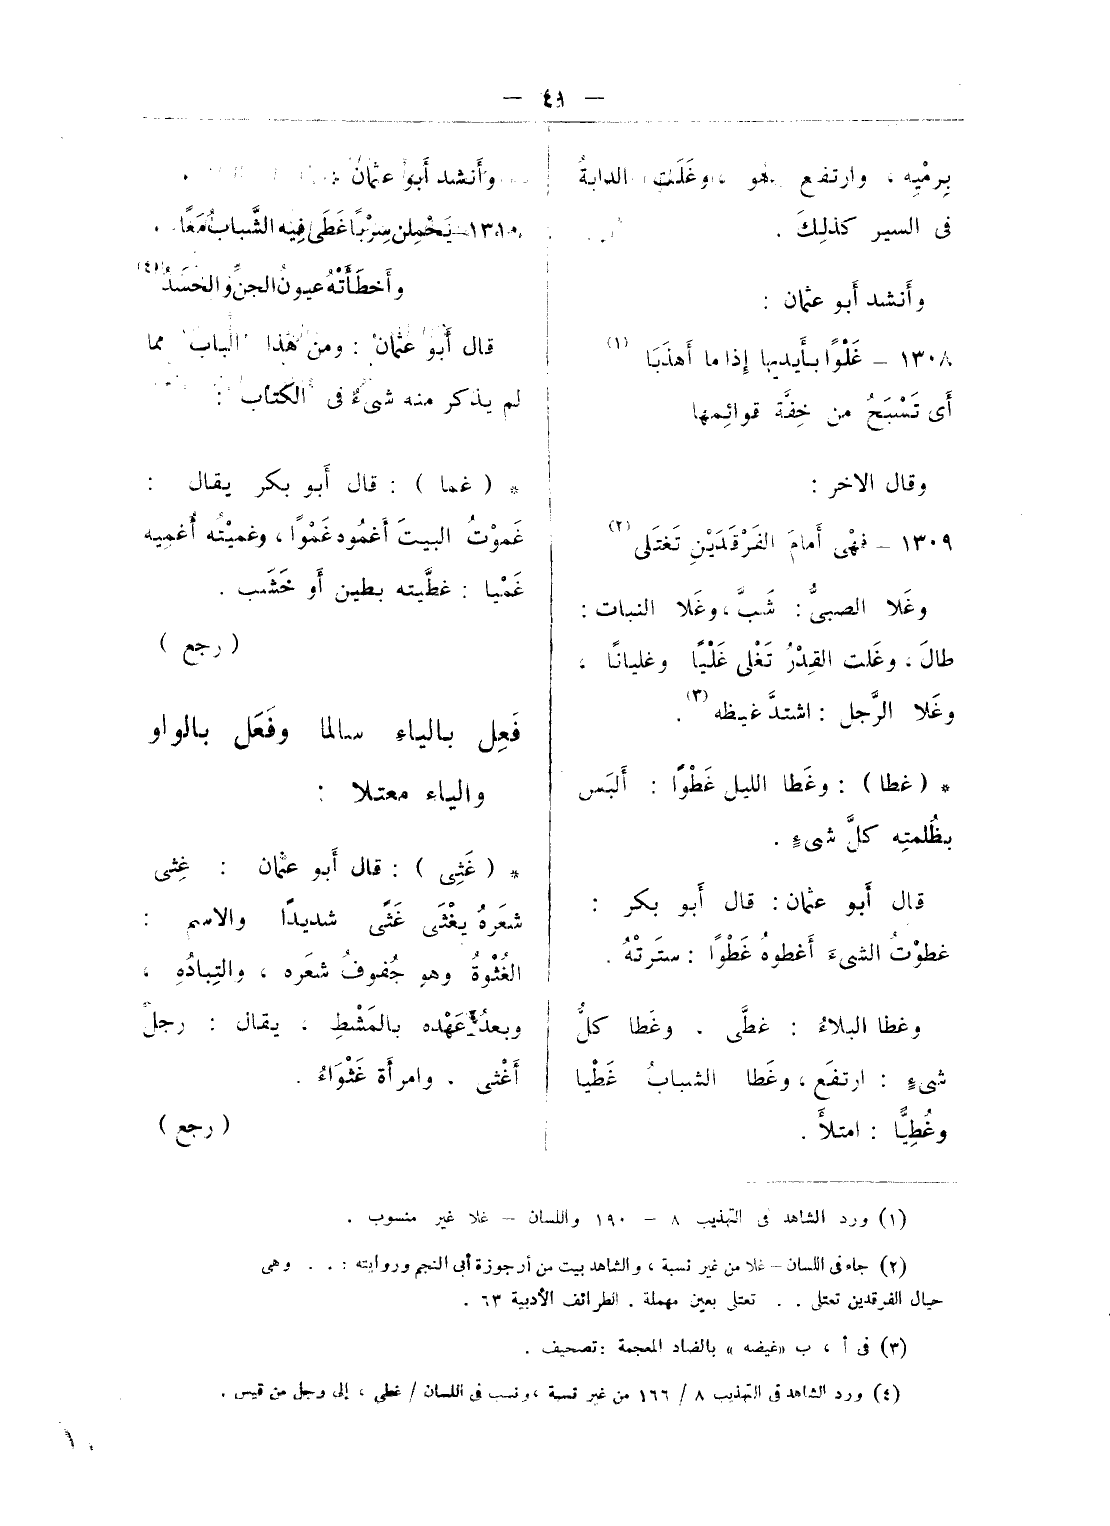 — ٤١ —
بِرمْيِه ، وارتفع هو ، وغَلَت الدابةُ
فى السير كذلِكَ .
وأَنشد أَبو عثمان :
١٣٠٨ – غَلْوًا بأَيديها إِذا ما أَهذَبَا (١)
أَى تَسْبَحُ من خِفَّة قوائِمها
وقال الاخر :
١٣٠٩ – فهْى أَمامَ الفَرْقَدَيْنِ تَغتَلى (٢)
وغَلا الصبىُّ : شَبَّ ، وغَلا النبات :
طالَ ، وغَلت القِدْرُ تَغْلى غَلْيًا وغليانًا ،
وغَلا الرَّجل : اشتدَّ غيظه (٣) .
* ( غطا ) : وغَطا الليل غَطْوًا : أَلبَس
بظُلمتِه كلَّ شىءٍ .
قال أَبو عثمان : قال أَبو بكر :
غطوْتُ الشىءَ أَغطوهُ غَطْوًا : ستَرتْهُ .
وغطا البلاءُ : غطَّى . وغَطا كلُّ
شىءٍ : ارتفَع ، وغَطا الشبابُ غَطْيا
وغُطِيًّا : امتلأَ .
وأَنشد أَبو عثمان
١٣١٠ – يَحْمِلن سِرْبًا غَطَى فِيه الشَّبابُ مَعًا .
وأَخطَأَتْهُ عيونُ الجنِّ والحَسَدُ (٤)
قال أَبو عثمان : ومن هَذا الباب مما
لم يذكر منه شىءٌ فى الكتاب :
* ( غما ) : قال أَبو بكر يقال :
غَموْتُ البيتَ أَغمُوه غَمْوًا ، وغميْتُه أُغمِيه
غَمْيا : غطَّيته بطين أَو خَشَب .
( رجع )
فَعِل بالياء سالما وفَعَل بالواو
والياء معتلا :
* ( غَثِى ) : قال أَبو عثمان : غِثى
شعَرهُ يغْثَى غَثًى شديدًا والاسم :
الغُثْوةُ وهو جُفوفُ شعَره ، والتِبادُهِ ،
وبعدُ عَهْده بالمَشْطِ ، يقال : رجلٌ
أَغْثى . وامرأَة غَثْوَاءُ .
( رجع )
(١) ورد الشاهد فى التهذيب ٨ – ١٩٠ واللسان – غلا غير منسوب .
(٢) جاء فى اللسان – غلا من غير نسبة ، والشاهد بيت من أرجوزة أبى النجم وروايته : . . وهى
حيال الفرقدين تعتلى . . تعتلى بعين مهملة . الطرائف الأدبية ٦٣ .
(٣) فى أ ، ب «غيضه » بالضاد المعجمة : تصحيف .
(٤) ورد الشاهد فى التهذيب ٨ / ١٦٦ من غير نسبة ، ونسب فى اللسان / غطى ، إلى رجل من قيس .